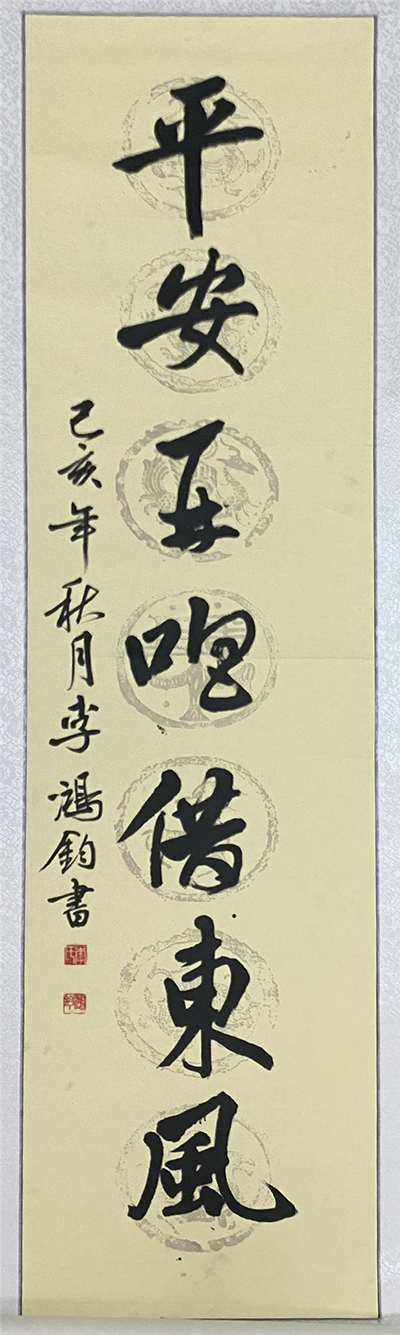 平安再唱借東風
己亥年秋月李鴻鈞書